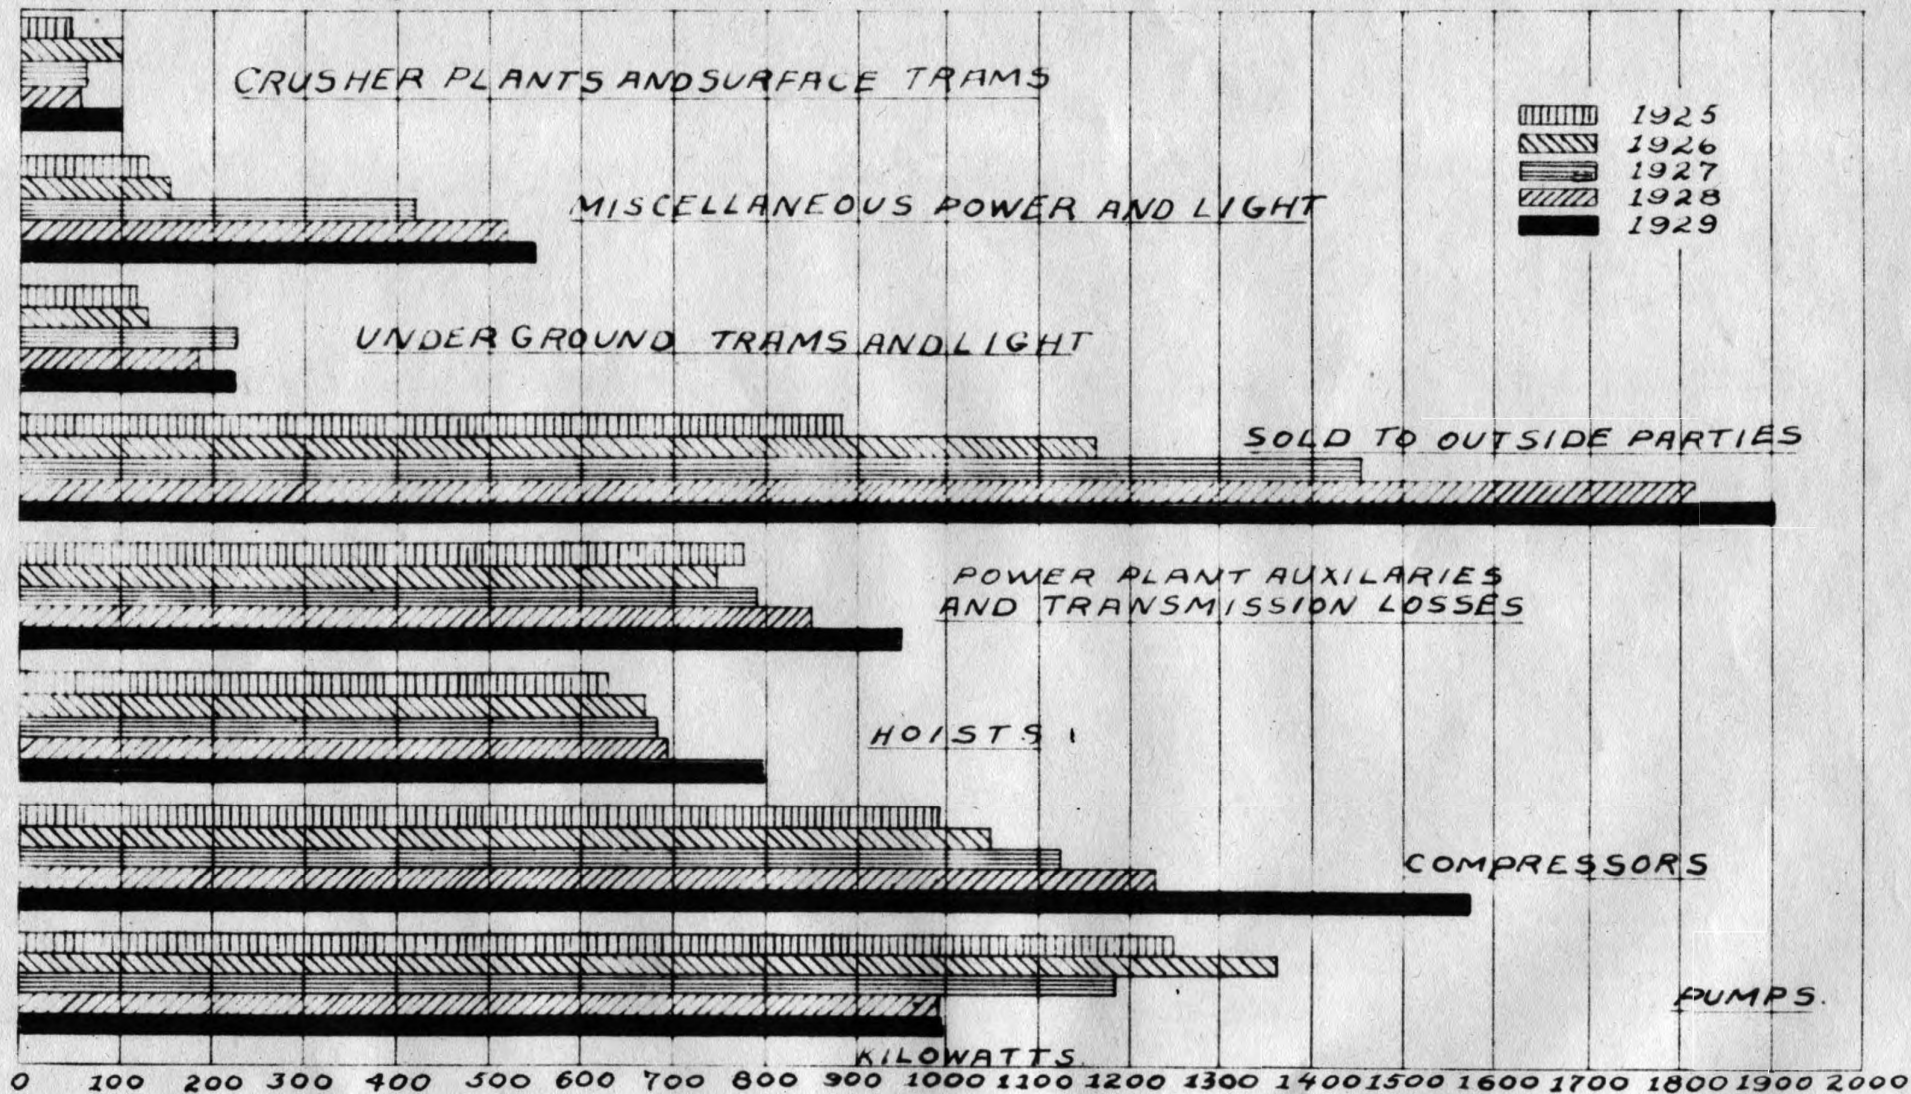 CRUSHER PLANTS AND SURFACE TRAMS
1925
1926
1927
1928
1929
MISCELLANEOUS POWER AND LIGHT
UNDERGROUND TRAMS AND LIGHT
SOLD TO OUTSIDE PARTIES
POWER PLANT AUXILARIES
AND TRANSMISSION LOSSES
HOISTS
COMPRESSORS
PUMPS.
KILOWATTS.
0 100 200 300 400 500 600 700 800 900 1000 1100 1200 1300 1400 1500 1600 1700 1800 1900 2000